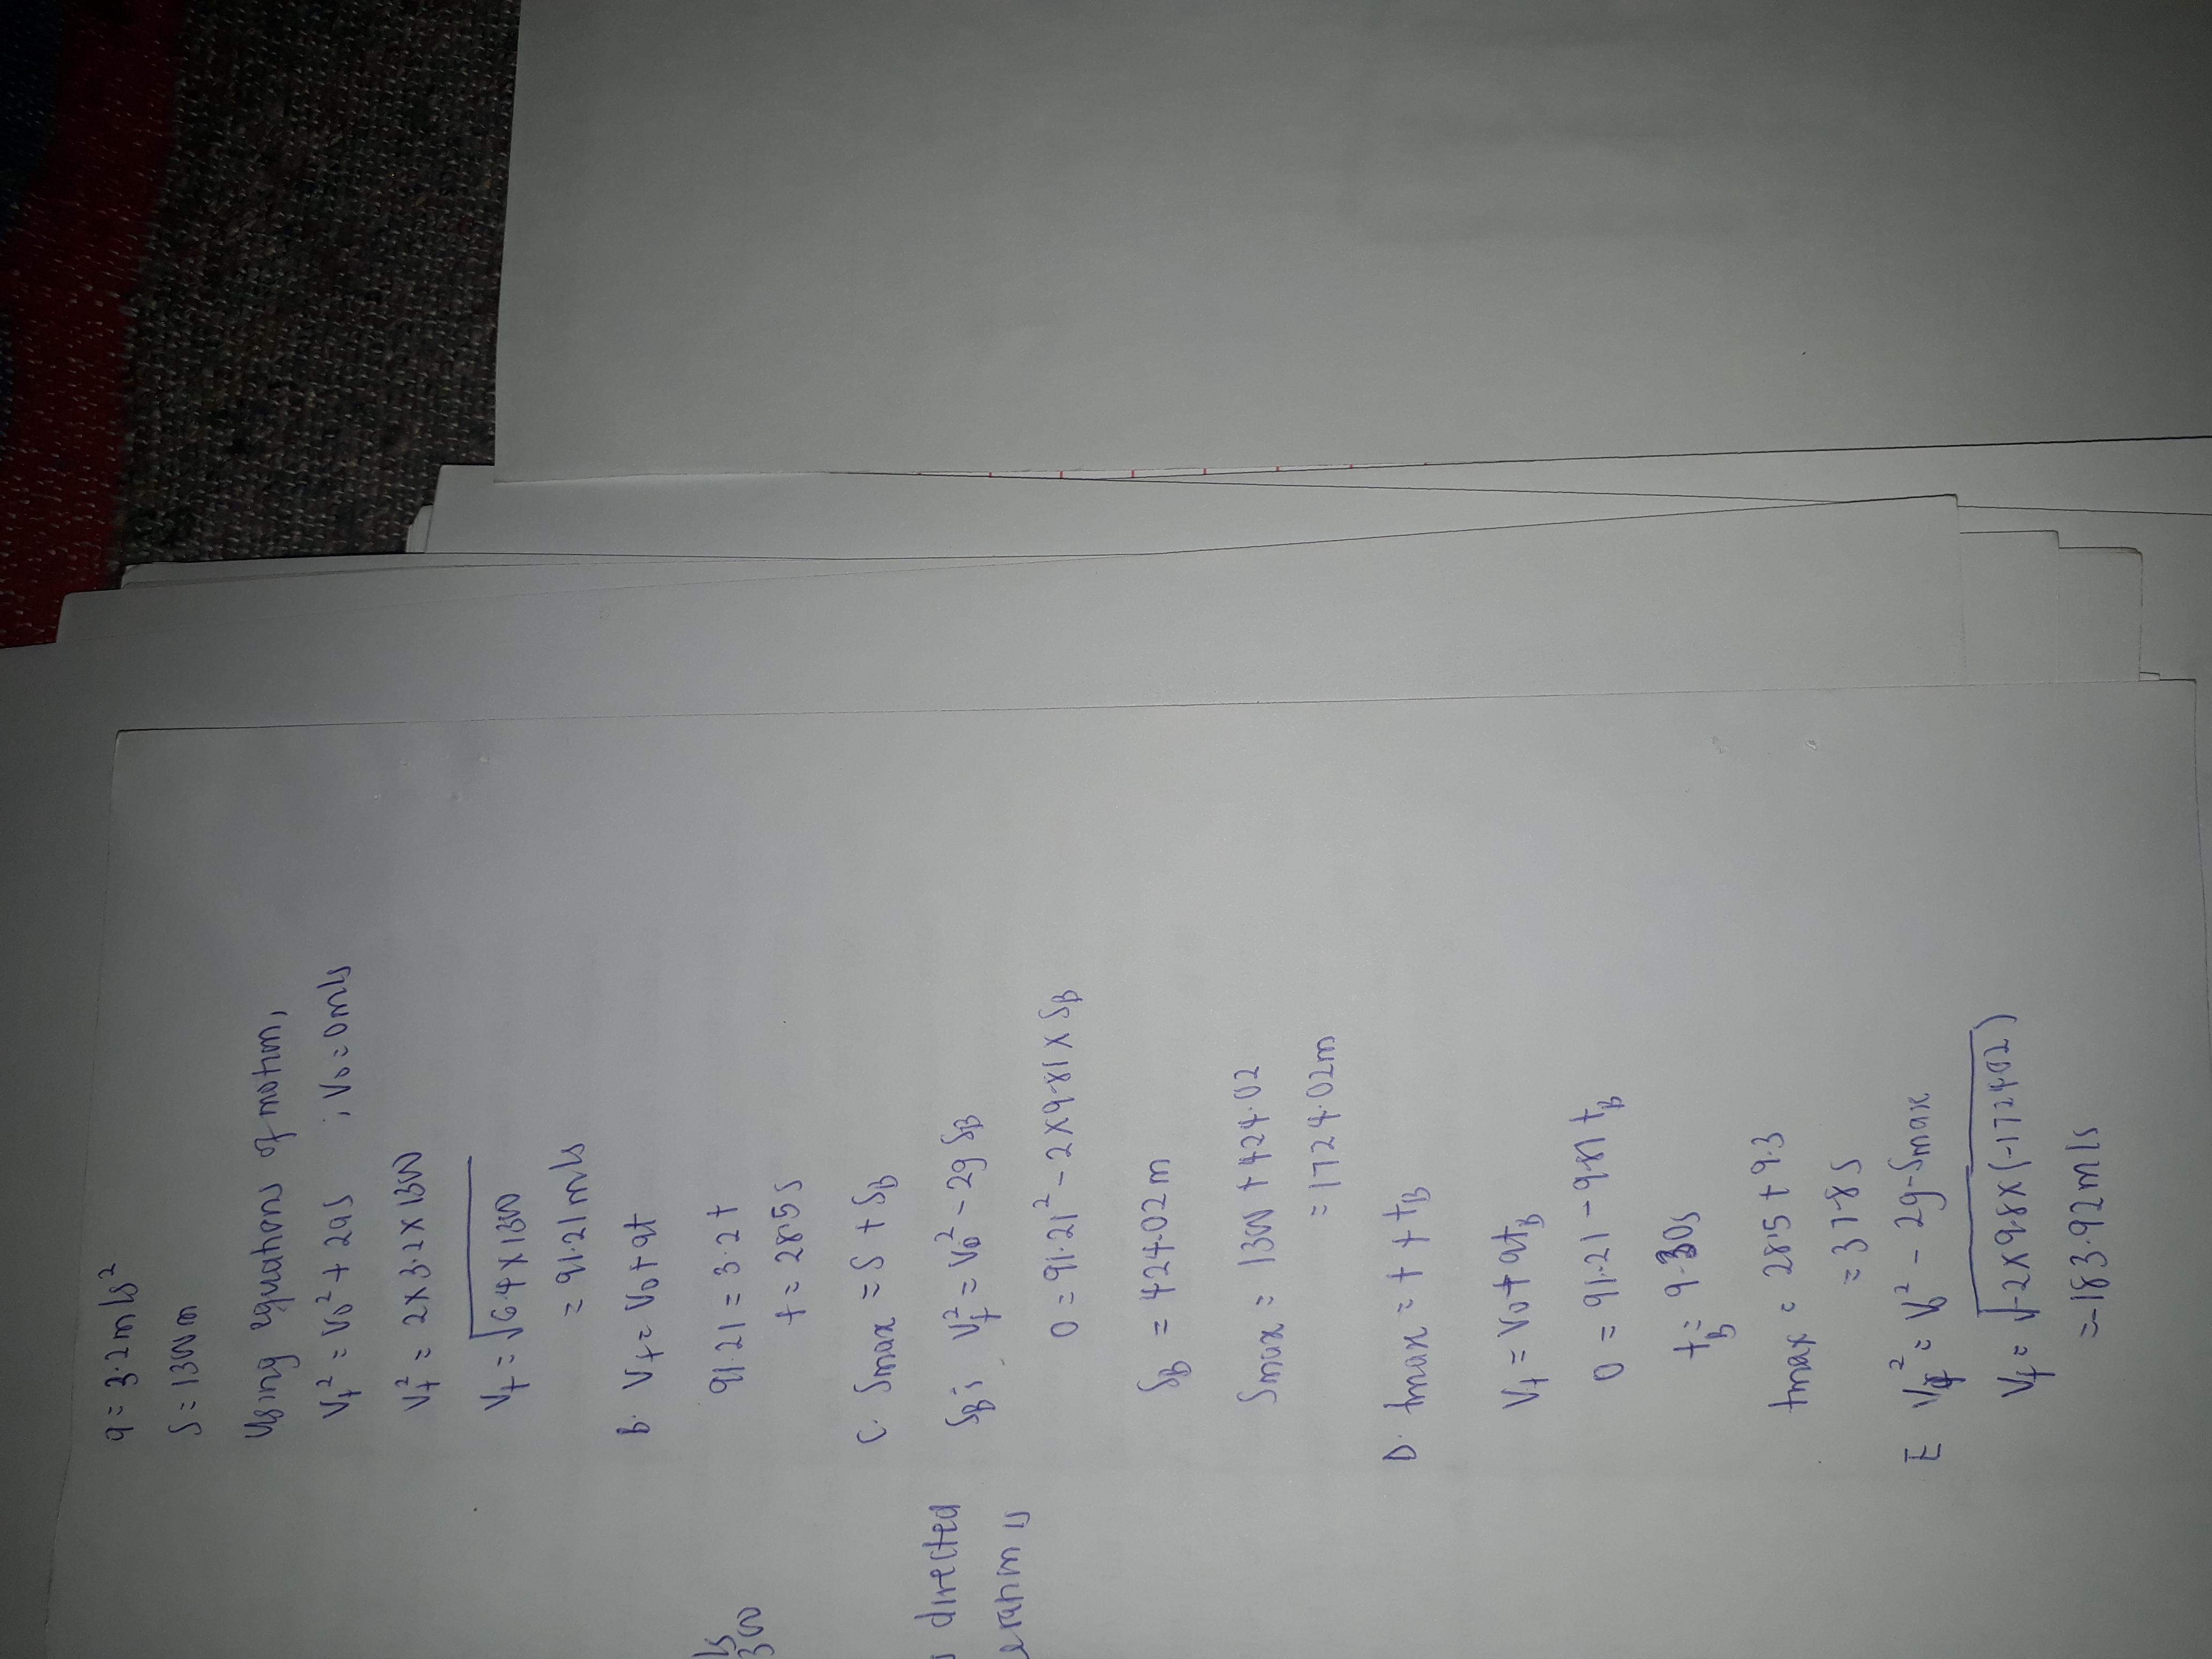 a = 3.2m/s²
S = 1300m
Using equations of motion,
Vf² = V0² + 2as ; V0 = 0m/s
Vf² = 2 x 3.2 x 1300
Vf = √6.4 x 1300
= 91.21m/s
B. Vf = V0 + at
91.21 = 3.2t
t = 28.5s
C. Smax = S + SB
SB: Vf² = V0² - 2g SB
0 = 91.21² - 2 x 9.81 x SB
SB = 424.02m
Smax = 1300 + 424.02
= 1724.02m
D. tmax = t + tB
Vf = V0 + atB
0 = 91.21 - 9.81 tB
tB = 9.30s
tmax = 28.5 + 9.3
= 37.8s
E Vf² = V0² - 2g Smax
Vf = √-2 x 9.8 x (-1724.02)
= -183.92m/s
300
directed